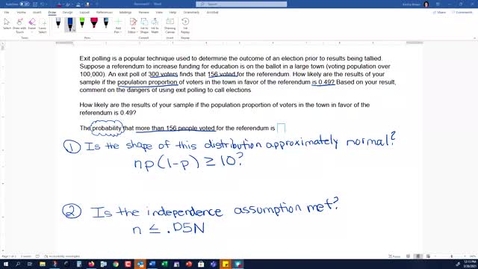 Exit polling is a popular technique used to determine the outcome of an election prior to results being tallied
Suppose a referendum to increase funding for education is on the ballot in a large town (voting population over
100,000). An exit poll of 300 voters finds that 156 voted for the referendum. How likely are the results of your
sample if the population proportion of voters in the town in favor of the referendum is 0.49? Based on your result,
comment on the dangers of using exit polling to call elections
How likely are the results of your sample if the population proportion of voters in the town in favor of the referendum
is 0.49?
The probability that more than 156 people voted for the referendum is
① Is the shape of this distribution approximately normal?
np(1-p) ≥ 10?
② Is the independence assumption met?
n ≤ .05N